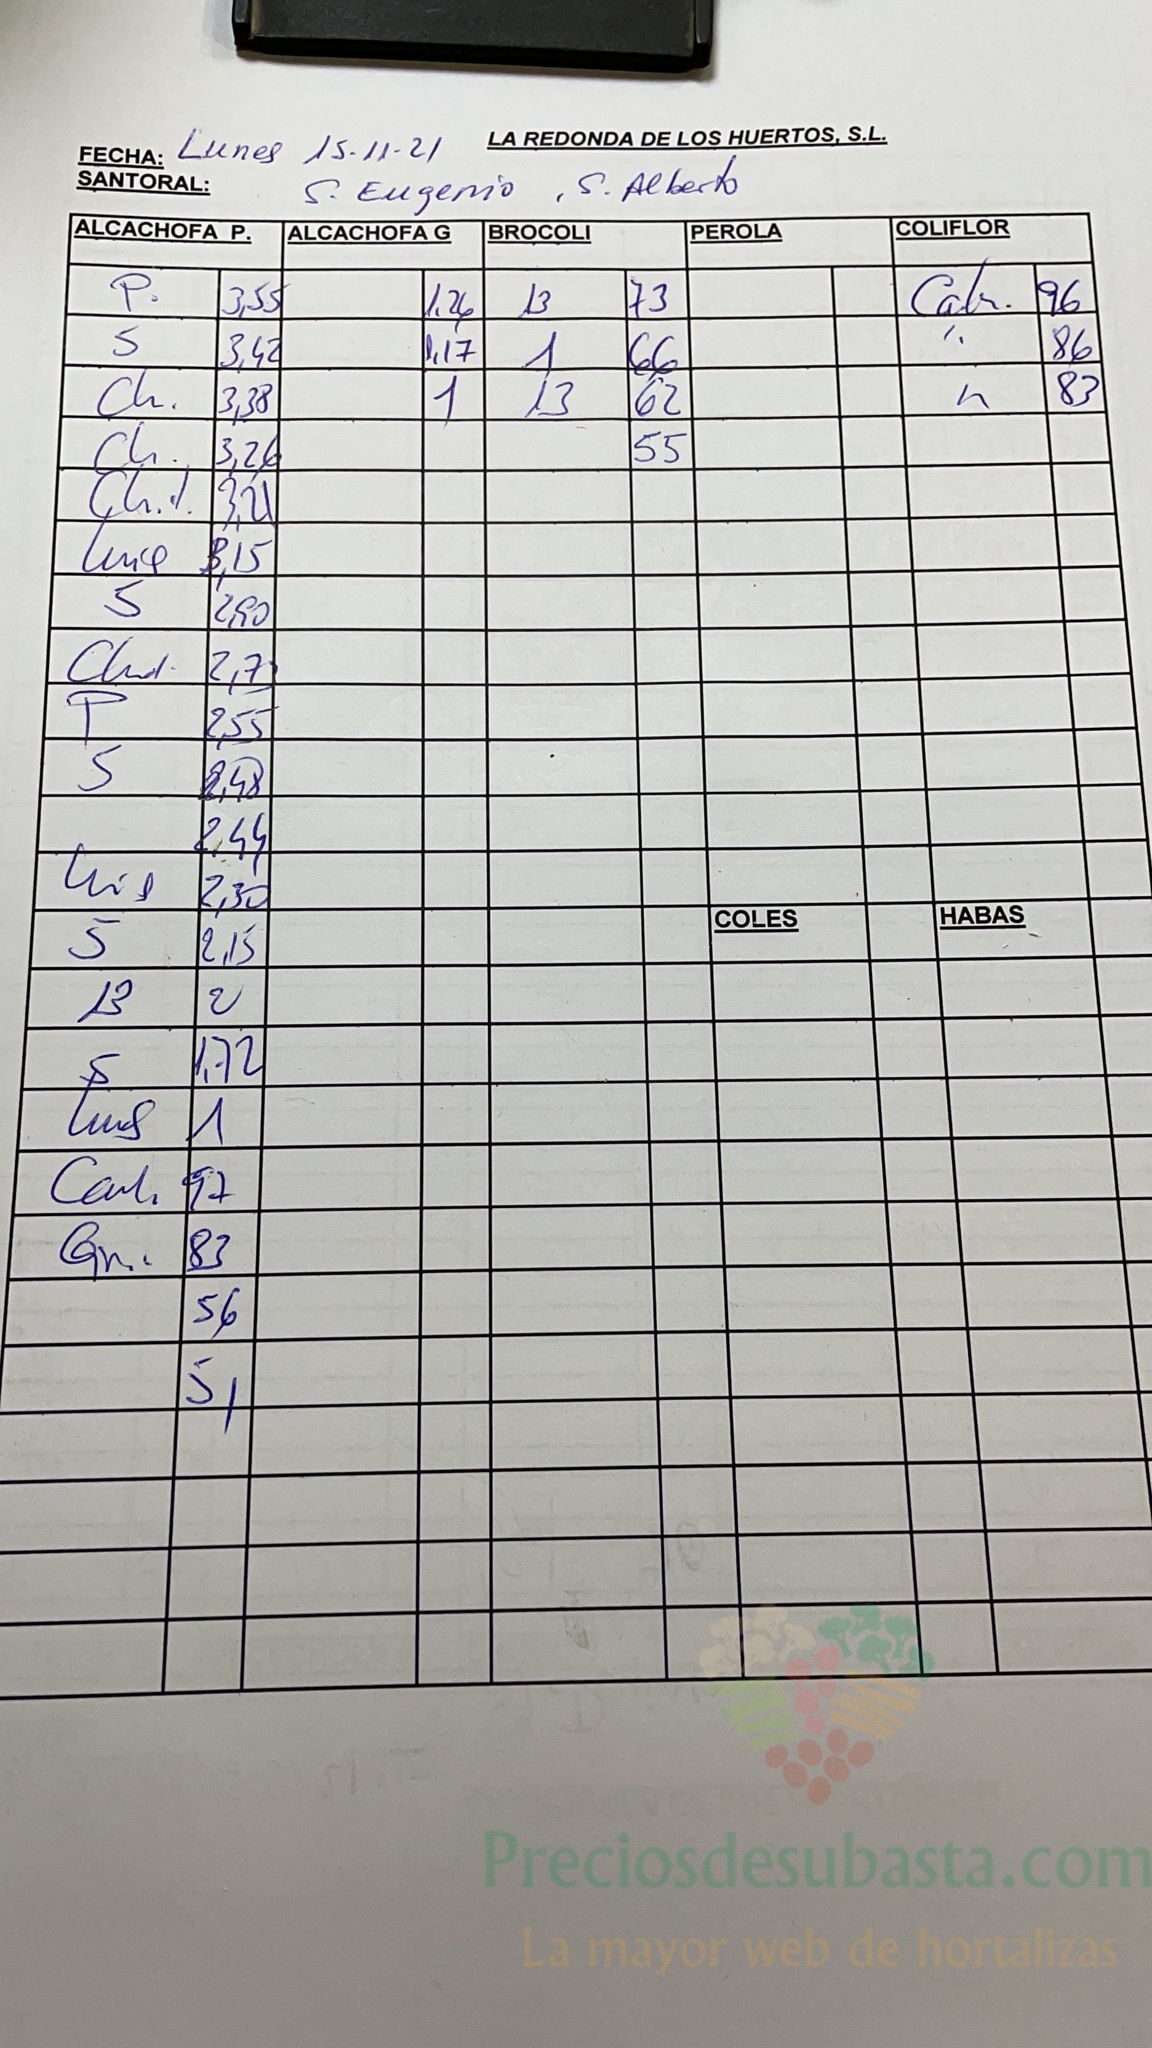 LA REDONDA DE LOS HUERTOS, S.L.
FECHA: Lunes 15-11-21
SANTORAL: S. Eugenio, S. Alberto
ALCACHOFA P. ALCACHOFA G BROCOLI PEROLA COLIFLOR
P. 3,55 1,26 13 73 96
S 3,42 1,17 1 66 " 86
Ch. 3,38 1 13 62 " 83
Ch. 3,26 55
Ch.d. 3,21
Luis 3,15
S 2,90
Chd. 2,77
P 2,55
S 2,48
2,44
Luis 2,30
COLES HABAS
S 2,15
13 2
S 1,72
Luis 1
97
83
56
51
Preciosdesubasta.com
La mayor web de hortalizas